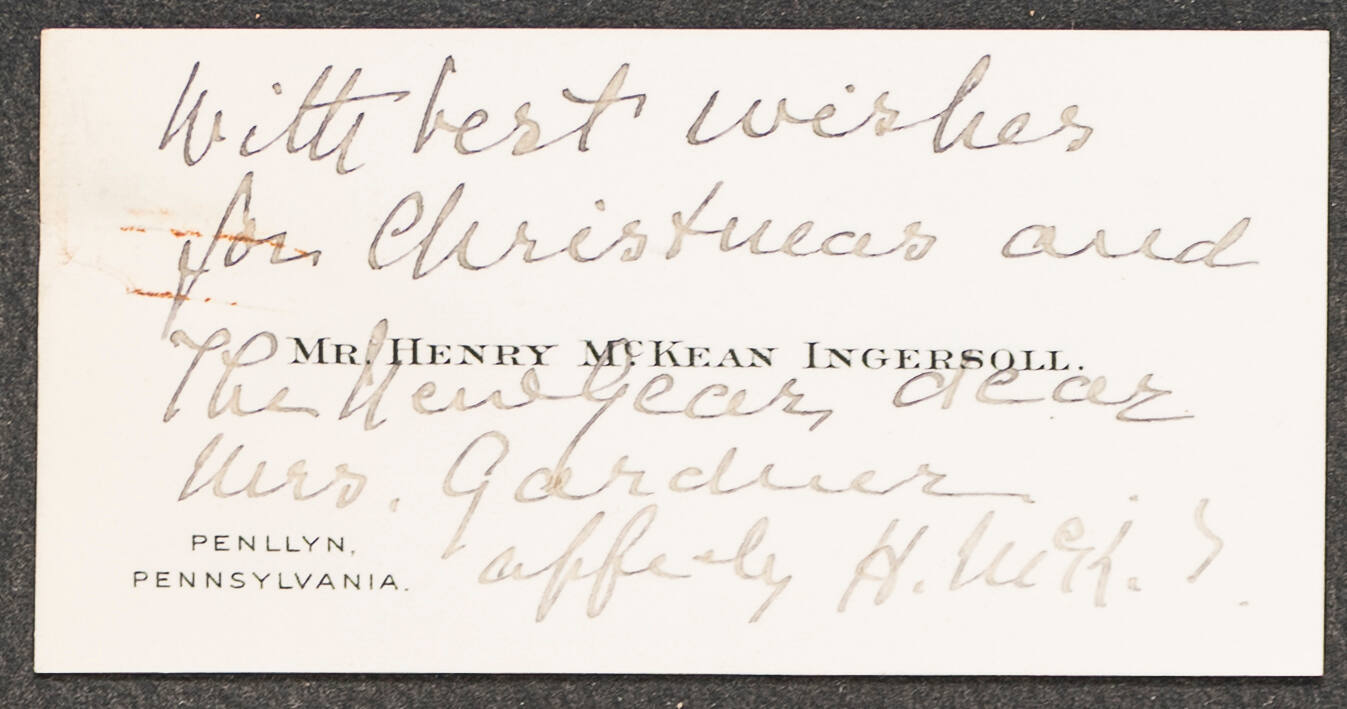 With best wishes
for Christmas and
MR. HENRY McKEAN INGERSOLL.
The New Year, dear
Mrs. Gardner
PENLLYN,
affe-ly H. McK. I.
PENNSYLVANIA.